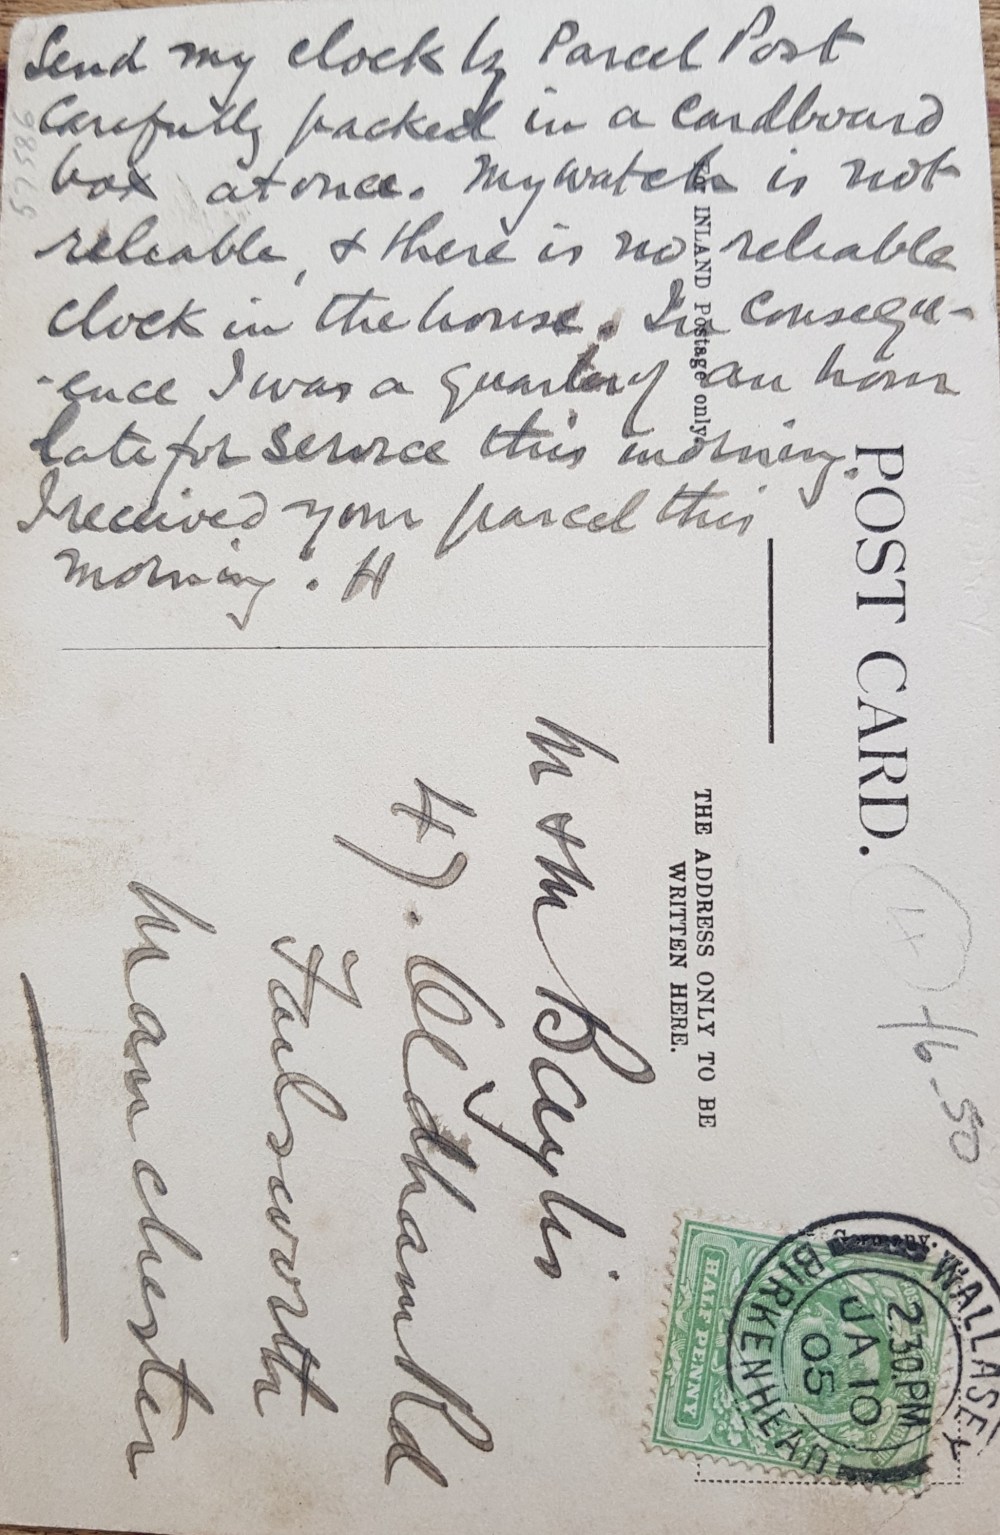 Send my clock by Parcel Post
Carefully packed in a cardboard
box at once. My watch is not
reliable, & there is no reliable
clock in the house. In consequ-
-ence I was a quarter of an hour
late for service this morning.
I received your parcel this
morning. H
57586
FOR INLAND Postage only.
POST CARD.
THE ADDRESS ONLY TO BE
WRITTEN HERE.
M & M Baylis
47. Oldham Rd
Failsworth
Manchester
£6-50
Germany.
HALFPENNY
WALLASEY
2.30 PM
JA 10
05
BIRKENHEAD